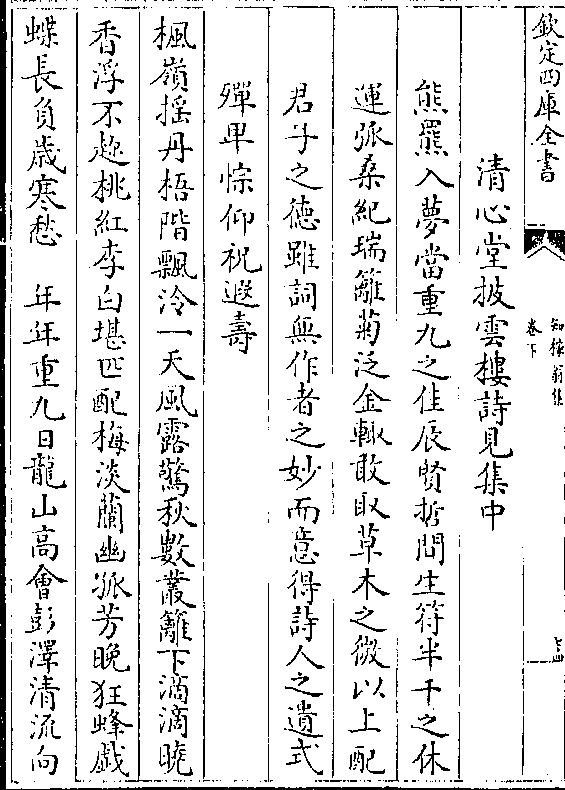 欽定四庫全書
知稼翁集
卷下
清心堂披雲樓詩見集中
熊羆入夢當重九之佳辰賢哲間生符半千之休
運弧桑紀瑞籬菊泛金輙敢取草木之微以上配
君子之德雖詞無作者之妙而意得詩人之遺式
殫卑悰仰祝遐壽
楓嶺搖丹梧階飄泠一天風露驚秋數叢籬下滴滴曉
香浮不趂桃紅李白堪匹配梅淡蘭幽孤芳晚狂蜂戲
蝶長負歲寒愁　年年重九日龍山高會彭澤清流向